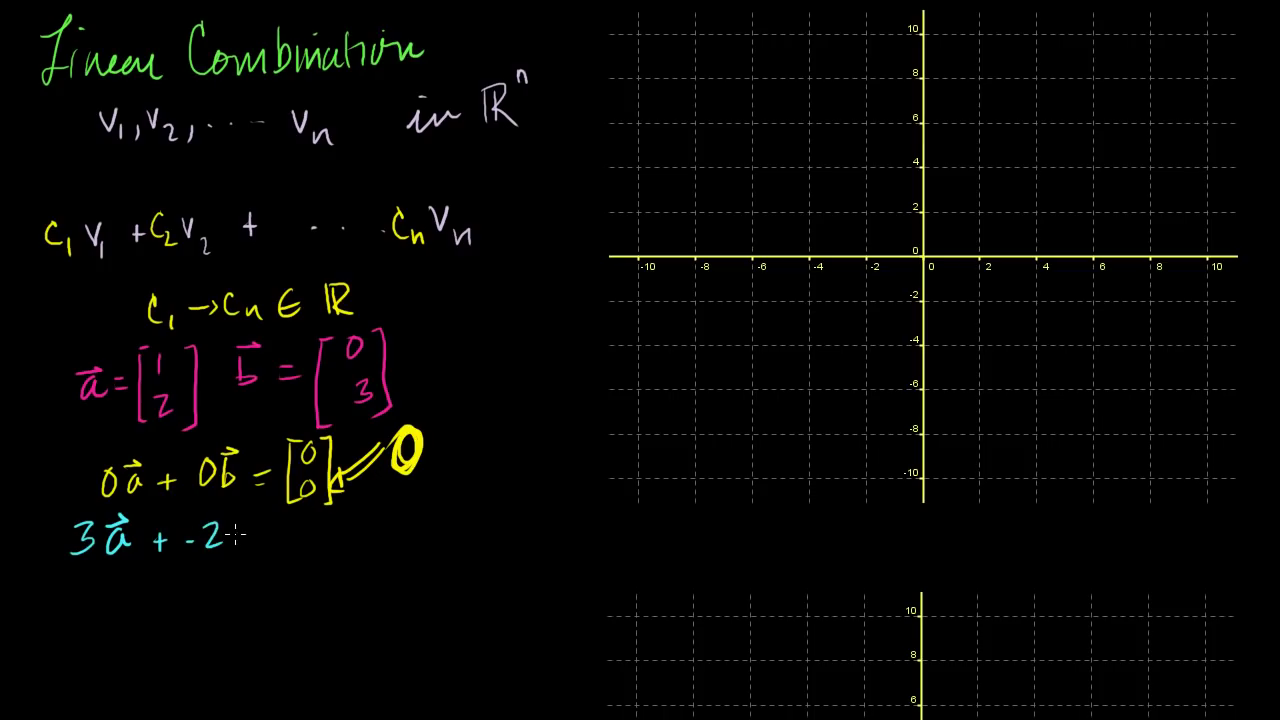 Linear Combination
v₁, v₂, ... vₙ in ℝⁿ
c₁v₁ + c₂v₂ + ... cₙvₙ
c₁ → cₙ ∈ ℝ
a⃗ = [1 2] b⃗ = [0 3]
0a⃗ + 0b⃗ = [0 0] 0
3a⃗ + -2
10
8
6
4
2
0
-10 -8 -6 -4 -2 0 2 4 6 8 10
-2
-4
-6
-8
-10
10
8
6